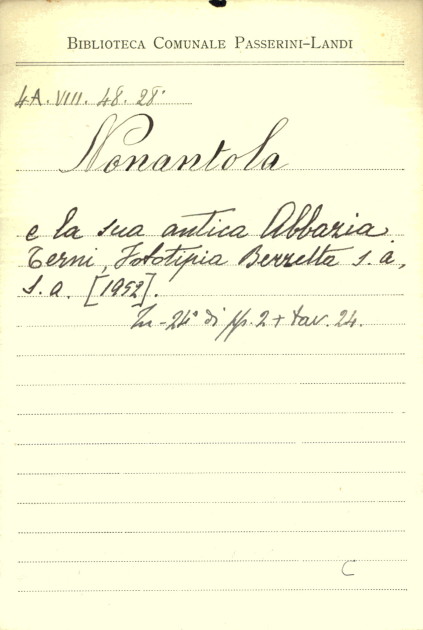 BIBLIOTECA COMUNALE PASSERINI-LANDI
4A. VIII. 48. 28.
Nonantola
e la sua antica Abbazia
Terni, Fototipia Berretta s.a,
s.a. [1952].
In-24° di pp. 2 + tav. 24.
C